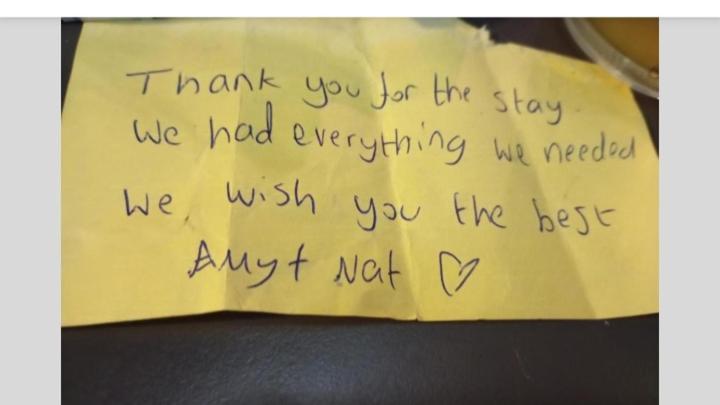 Thank you for the stay.
We had everything we needed
We wish you the best
Amy + Nat ♡